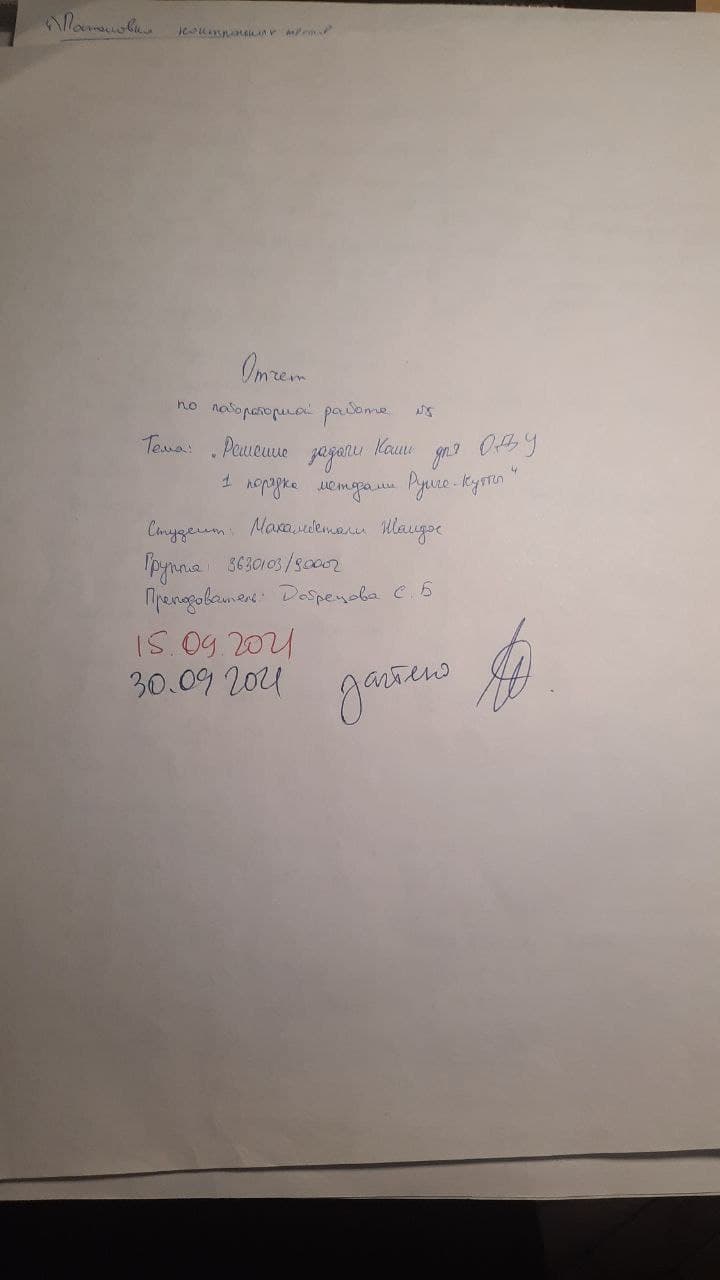 Отчет
по лабораторной работе №5
Тема: „Решение задачи Коши для ОДУ
1 порядка методами Рунге-Кутты"
Студент: Махамбетали Жандос
Группа: 3630103/90002
Преподователь: Добрецова С. Б
15.09.2021
30.09 2021 зачтено